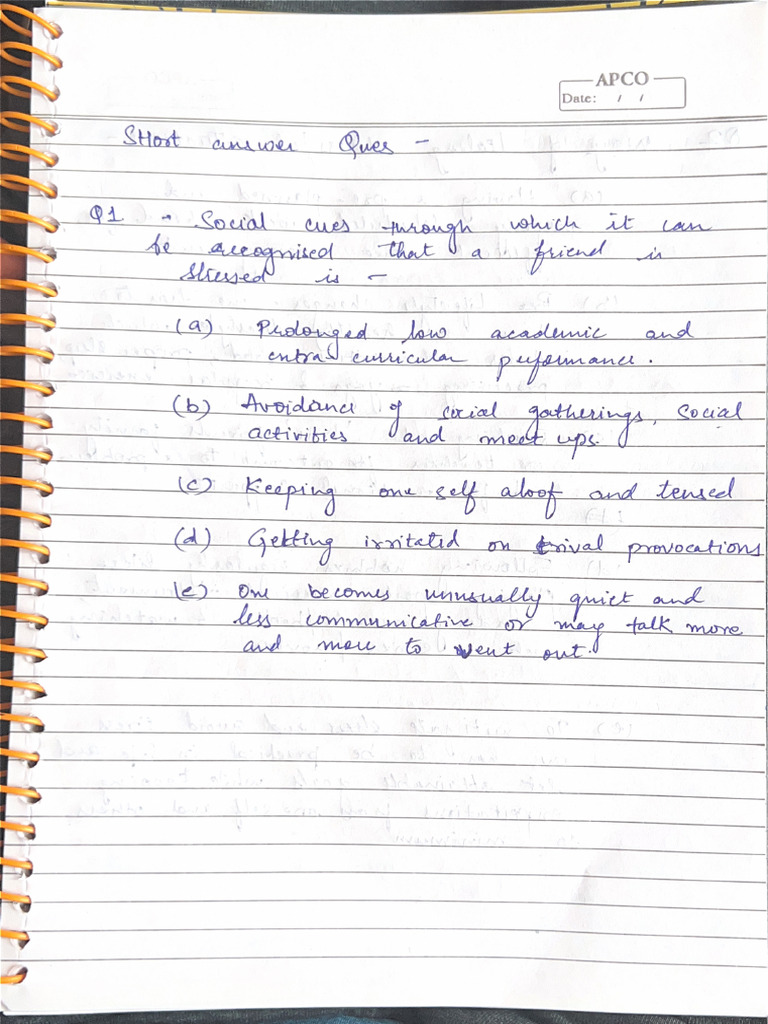 APCO
Date: / /
SHort answer Ques -
Q1 - Social cues through which it can
be recognised that a friend is
stressed is -
(a) Prolonged low academic and
extra curricular performance.
(b) Avoidance of social gatherings, social
activities and meet ups.
(c) Keeping one self aloof and tensed
(d) Getting irritated on trival provocations
(e) One becomes unusually quiet and
less communicative or may talk more
and more to vent out.